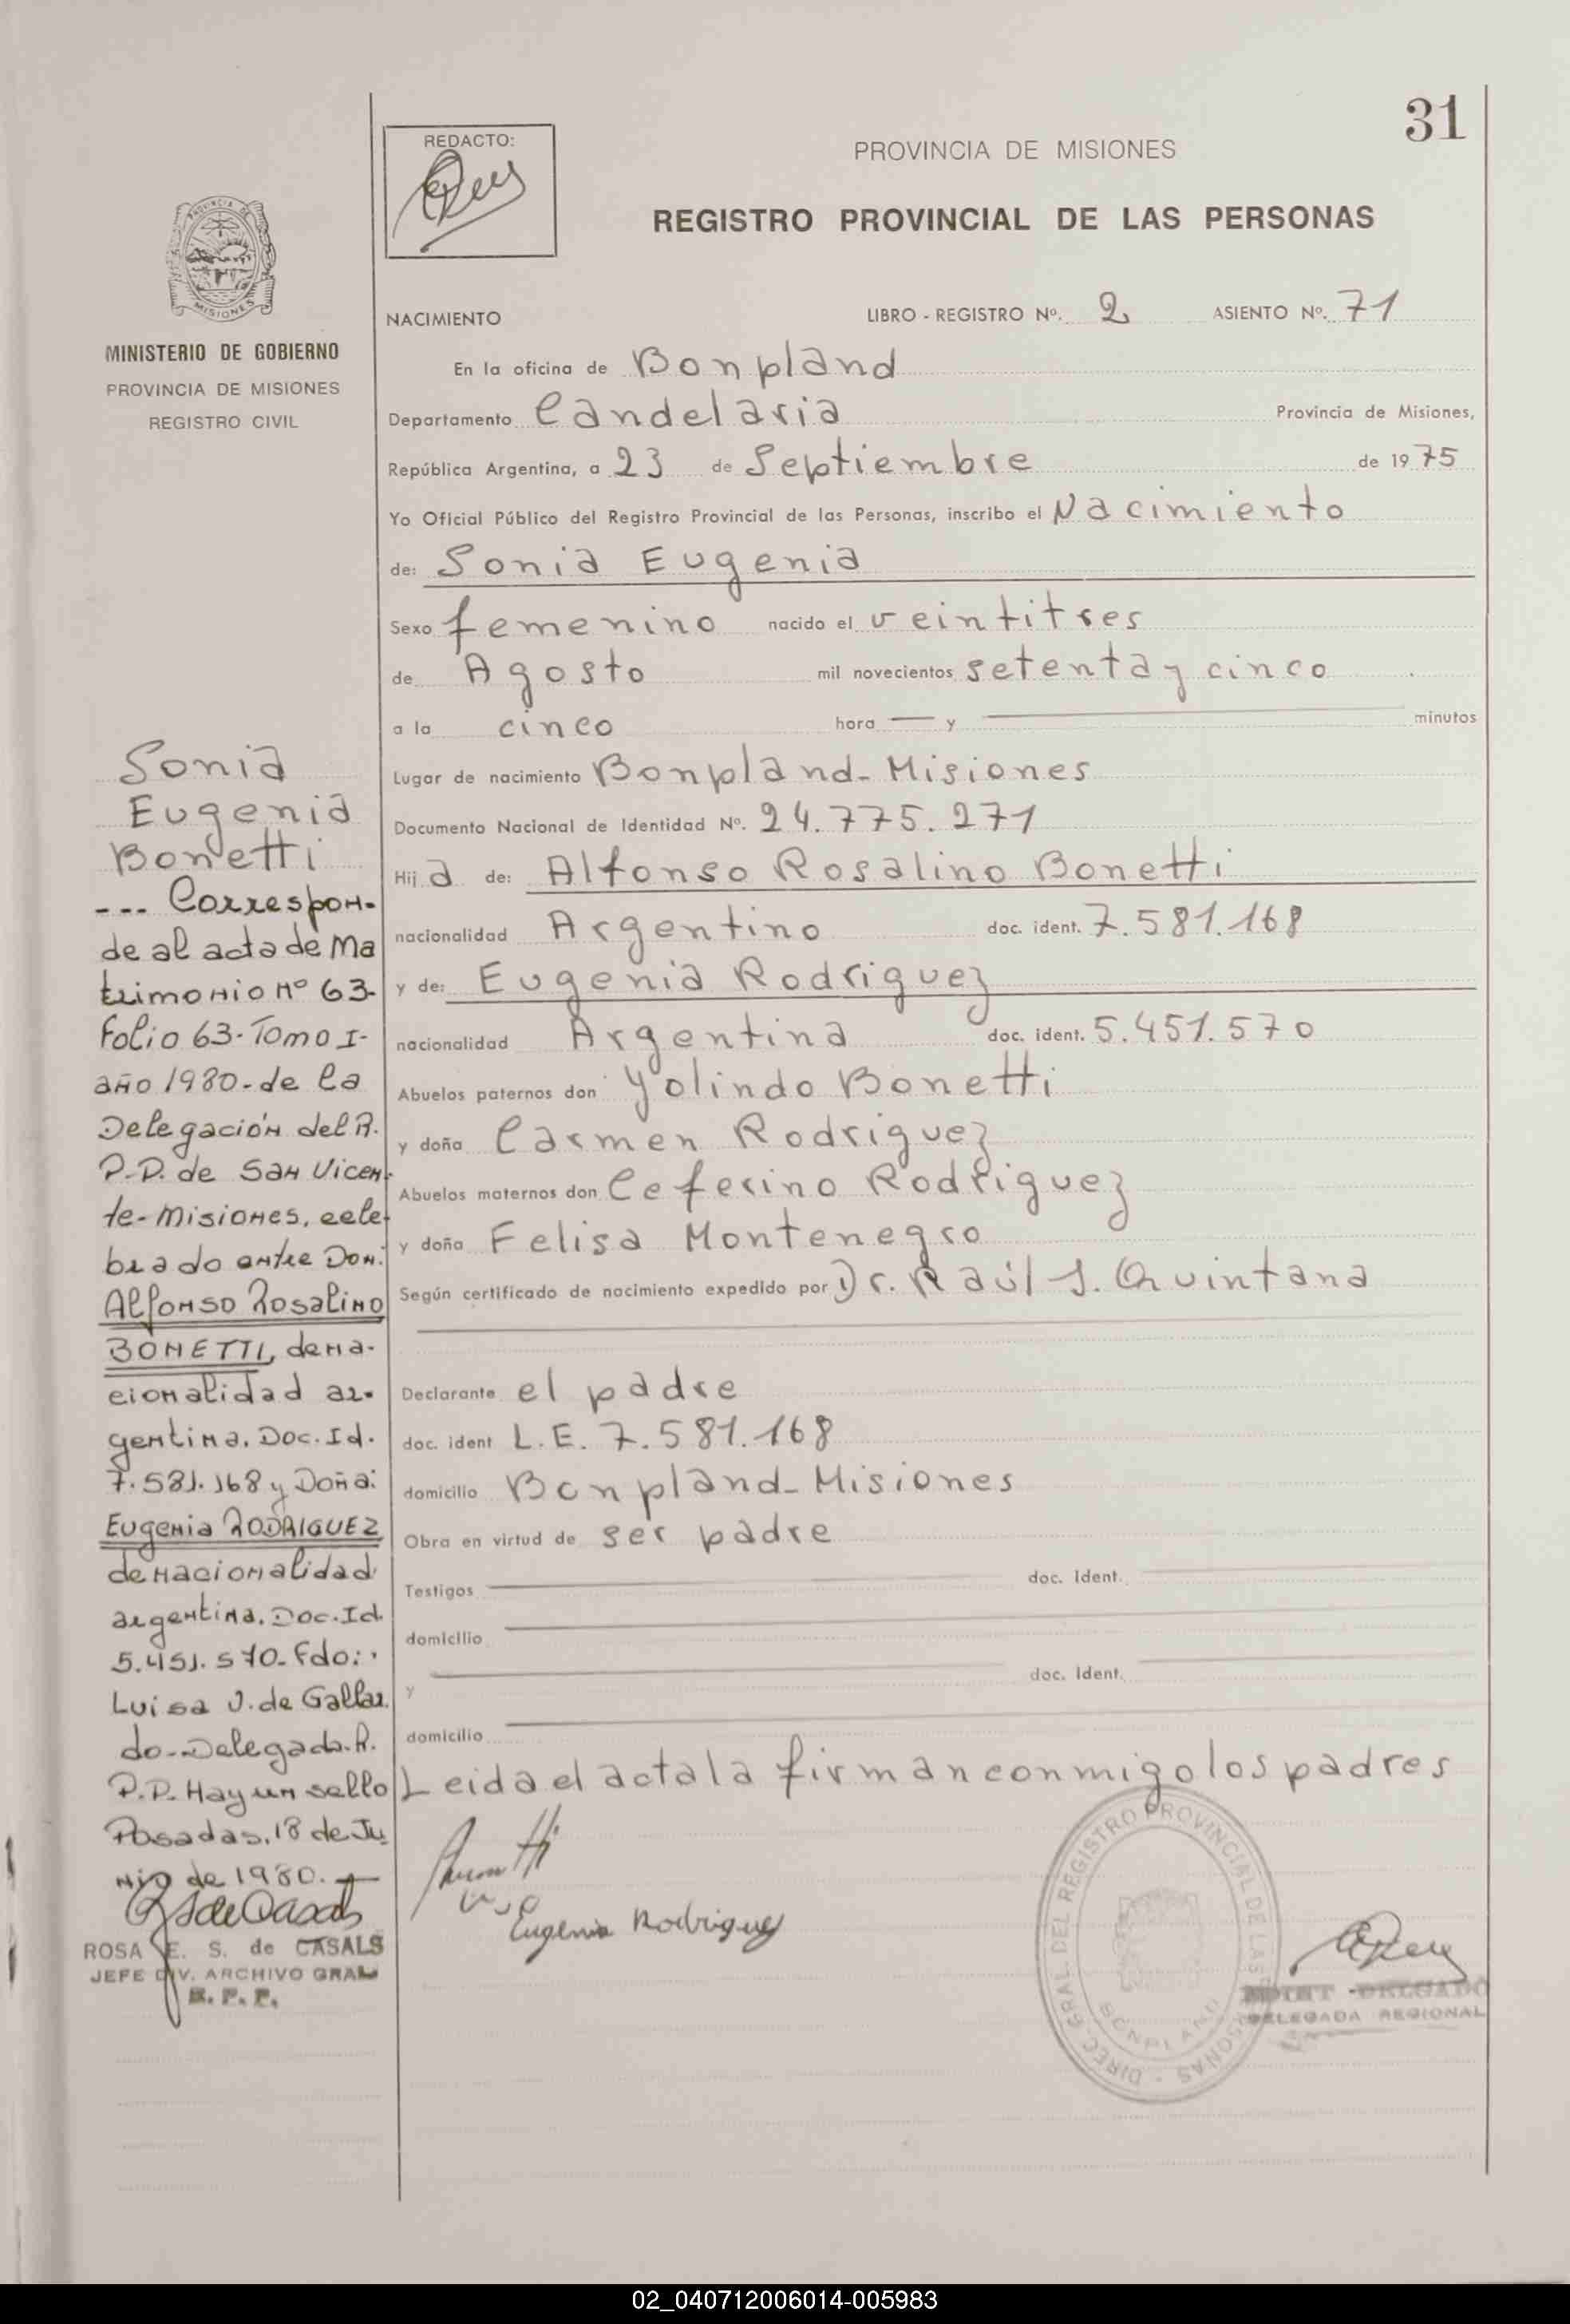 31
REDACTO:
PROVINCIA DE MISIONES
REGISTRO PROVINCIAL DE LAS PERSONAS
PROVINCIA DE
MISIONES
MINISTERIO DE GOBIERNO
PROVINCIA DE MISIONES
REGISTRO CIVIL
NACIMIENTO LIBRO - REGISTRO Nº. 2 ASIENTO Nº. 71
En la oficina de Bonpland
Departamento Candelaria Provincia de Misiones,
República Argentina, a 23 de Septiembre de 1975
Yo Oficial Público del Registro Provincial de las Personas, inscribo el Nacimiento
de: Sonia Eugenia
Sexo femenino nacido el veintitres
de Agosto mil novecientos setenta y cinco
a la cinco hora — y — minutos
Lugar de nacimiento Bonpland - Misiones
Documento Nacional de Identidad Nº. 24.775.271
Hija de: Alfonso Rosalino Bonetti
nacionalidad Argentino doc. ident. 7.581.168
y de: Eugenia Rodriguez
nacionalidad Argentina doc. ident. 5.451.570
Abuelos paternos don Yolindo Bonetti
y doña Carmen Rodriguez
Abuelos maternos don Ceferino Rodriguez
y doña Felisa Montenegro
Según certificado de nacimiento expedido por Dr. Raúl J. Quintana
Declarante el padre
doc. ident L.E. 7.581.168
domicilio Bonpland - Misiones
Obra en virtud de ser padre
Testigos doc. Ident.
domicilio
y doc. Ident.
domicilio
Leida el acta la firman conmigo los padres
Eugenia Rodriguez
DIREC. GRAL. DEL REGISTRO PROVINCIAL DE LAS PERSONAS -
BONPLAND
DELGADO
DELEGADA REGIONAL
Sonia
Eugenia
Bonetti
--- Correspon-
de al acta de Ma
trimonio Nº 63-
Folio 63-Tomo I-
año 1980-de la
Delegación del R.
P.P. de San Vicen-
te-Misiones, cele-
brado entre Don:
Alfonso Rosalino
BONETTI, de na-
cionalidad ar-
gentina. Doc. Id.
7.581.168 y Doña:
Eugenia RODRIGUEZ
de nacionalidad
argentina. Doc. Id
5.451.570-Fdo:
Luisa J. de Gallar
do-Delegada-R.
P.P. Hay un sello
Posadas, 18 de Ju
nio de 1980.-
ROSA E. S. de CASALS
JEFE DIV. ARCHIVO GRAL
R. P. P.
02_040712006014-005983